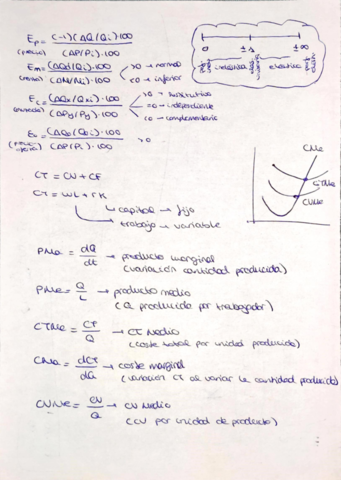 Ep = (-1)(ΔQ/Qi)·100 / (ΔP/Pi)·100
(precio)
Em = (ΔQ/Qi)·100 / (ΔM/Mi)·100
(renta)
>0 → normal
<0 → inferior
Ec = (ΔQx/Qxi)·100 / (ΔPy/Py)·100
(cruzada)
>0 → sustitutivo
=0 → independiente
<0 → complementario
Eo = (ΔQo/Qoi)·100 / (ΔP/Pi)·100 >0
0 ±1 ±∞
inelástica elástica
CT = CV + CF
CT = wL + rK
capital → fijo
trabajo → variable
CMa
CTMe
CVMe
PMa = dQ/dt → producto marginal
(variación cantidad producida)
PMe = Q/L → producto medio
(Q producida por trabajador)
CTMe = CT/Q → CT Medio
(coste total por unidad producida)
CMa = dCT/dQ → coste marginal
(variación CT al variar la cantidad producida)
CVMe = CV/Q → CV Medio
(CV por unidad de producto)